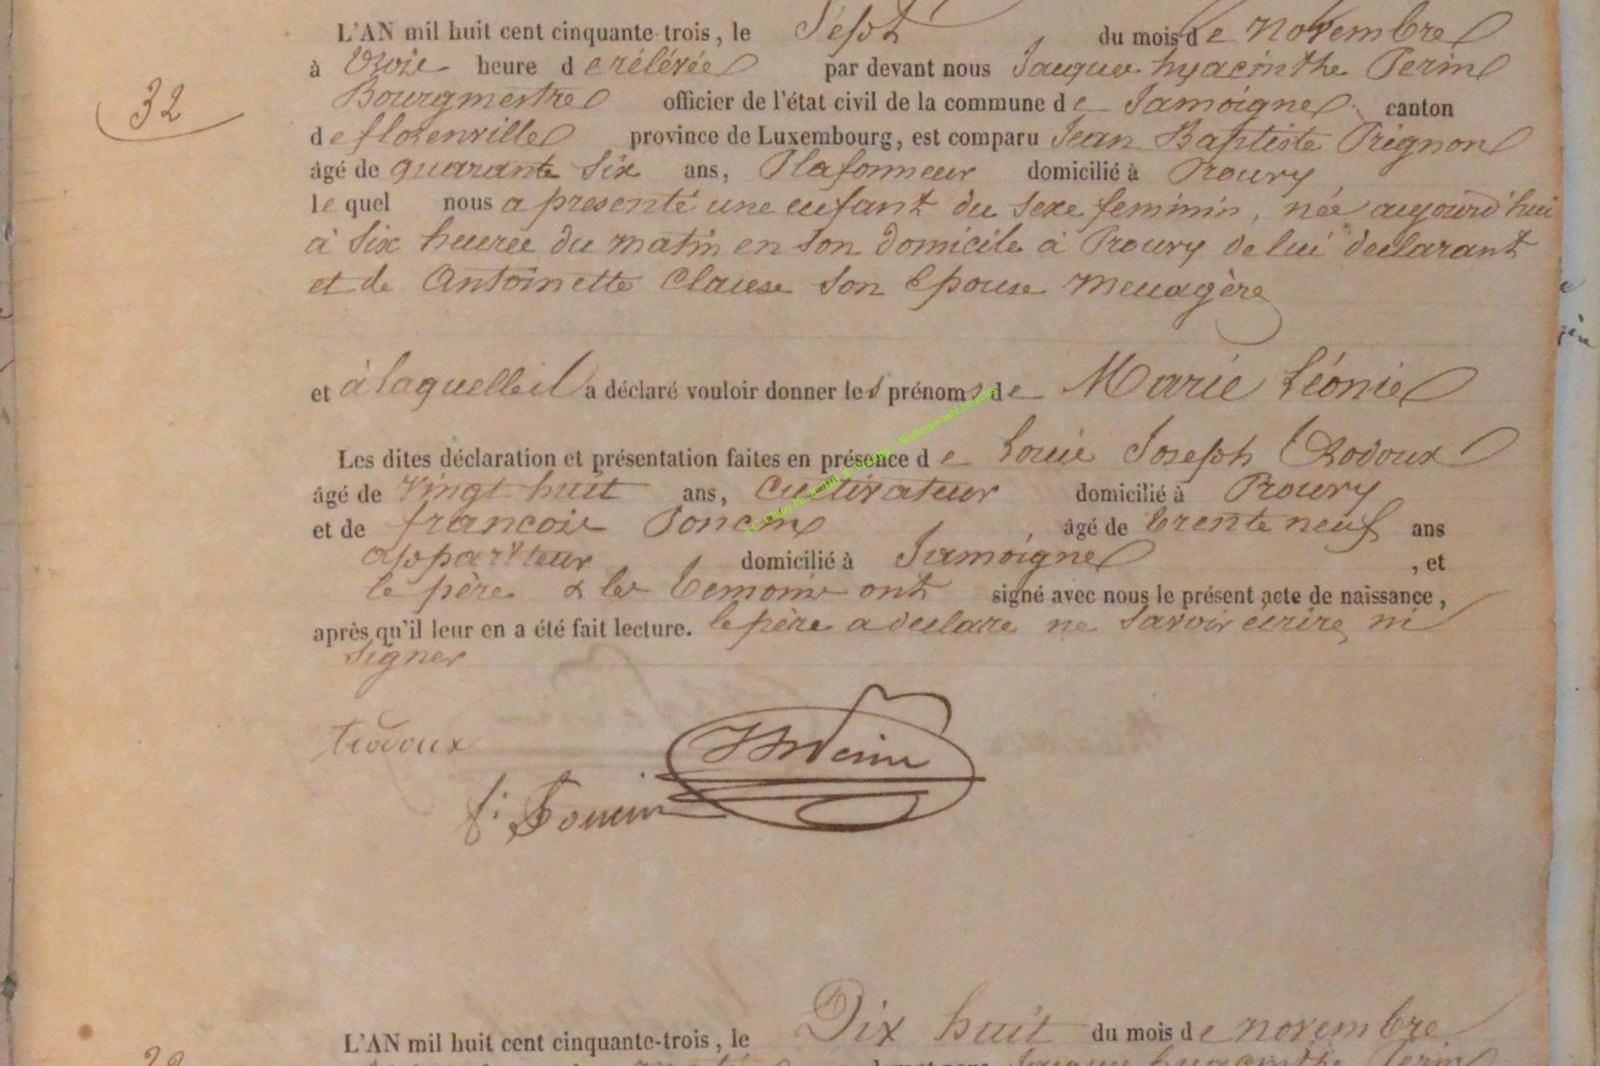 L'AN mil huit cent cinquante-trois, le Sept du mois de Novembre
à trois heure de rélévée par devant nous Jacques hyacinthe Perin
32
Bourgmestre officier de l'état civil de la commune de Jamoigne canton
de florenville province de Luxembourg, est comparu Jean Baptiste Prignon
âgé de quarante six ans, Plafonneur domicilié à Prouvy
le quel nous a presenté une enfant du sexe feminin, née aujourd'hui
à six heures du matin en son domicile à Prouvy de lui declarant
et de Antoinette Clause son Epouse menagère
et à laquelle il a déclaré vouloir donner les prénoms de Marie Léonie
Les dites déclaration et présentation faites en présence de Louis Joseph Trodoux
âgé de vingt huit ans, Cultivateur domicilié à Prouvy
et de francois Poncin âgé de trente neuf ans
appariteur domicilié à Jamoigne, et
le père & les temoins ont signé avec nous le présent acte de naissance,
après qu'il leur en a été fait lecture. le père a declare ne savoir écrire, ni
signer
trodoux
f: Poncin
L'AN mil huit cent cinquante-trois, le Dix huit du mois de novembre
Jacques hyacinthe Perin